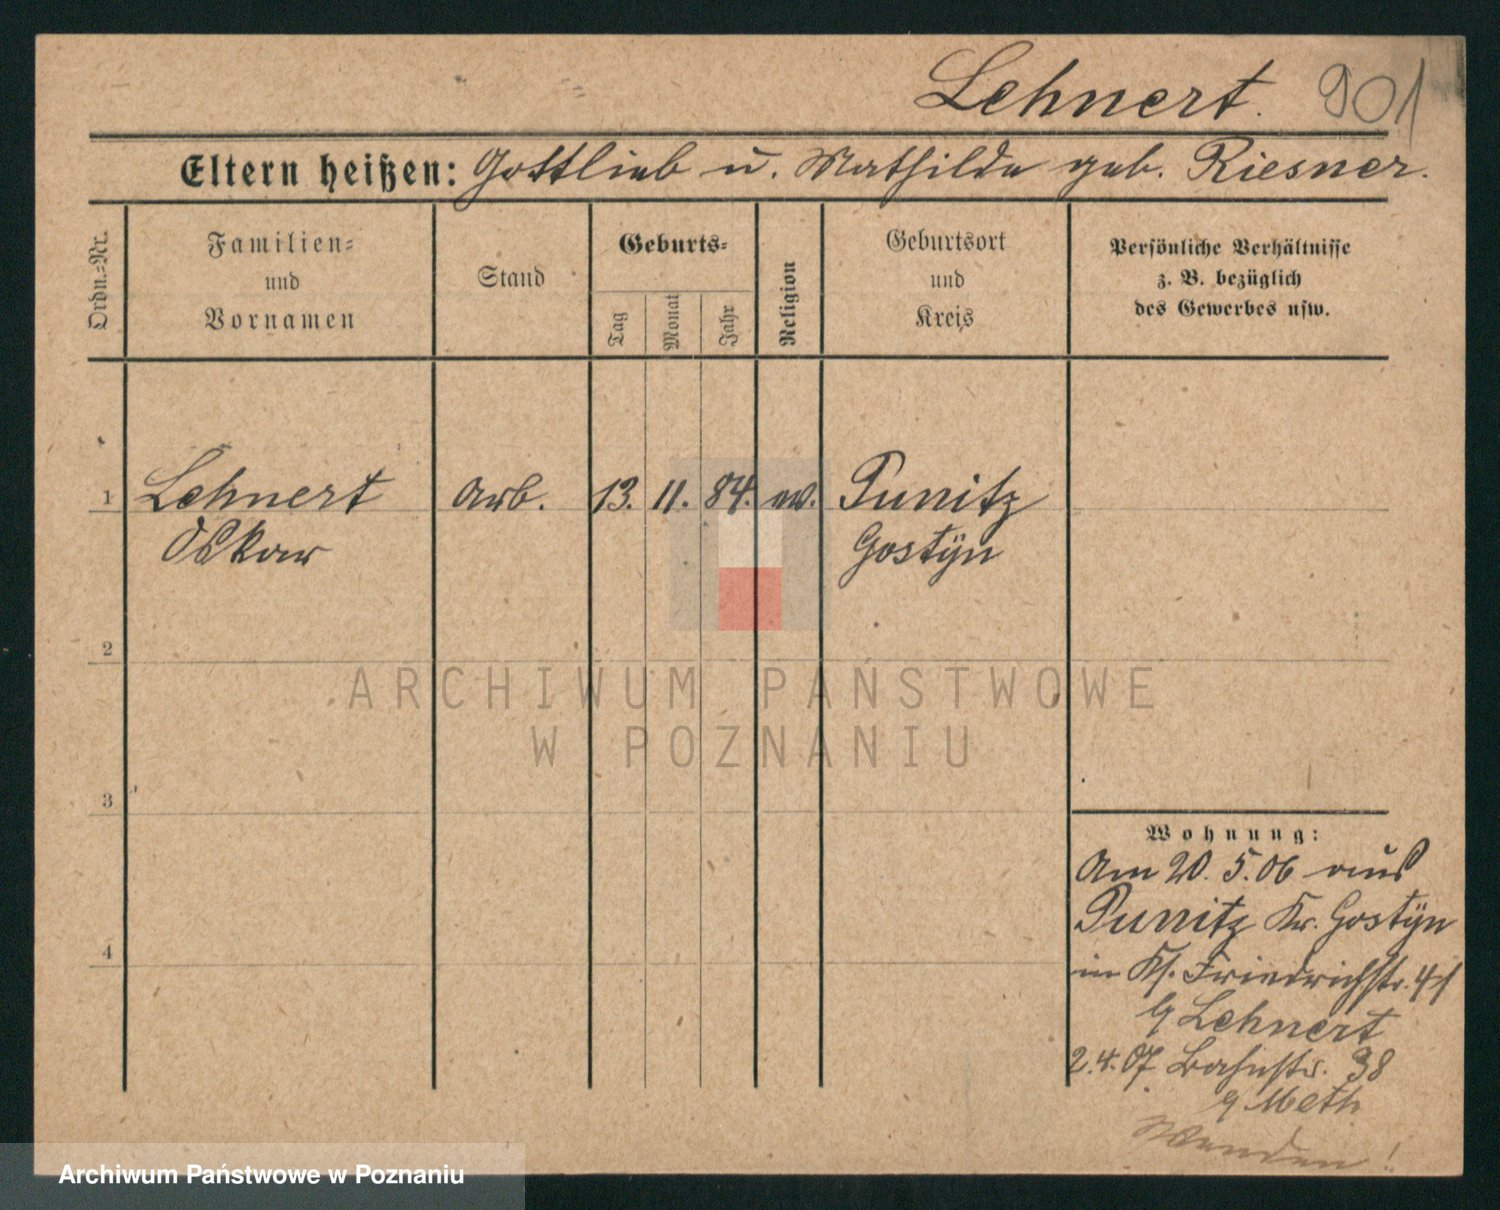 Lehnert. 901
Eltern heißen: Gottlieb u. Mathilde geb. Riesner.
Ordn.=Nr.
Familien=
und
Vornamen
Stand
Geburts=
Tag
Monat
Jahr
Religion
Geburtsort
und
Kreis
Persönliche Verhältnisse
z. B. bezüglich
des Gewerbes usw.
1 Lehnert Arb. 13. 11. 84. ev. Punitz
Oskar Gostÿn
2
3
4
Wohnung:
Am 20. 5. 06 aus
Punitz Kr. Gostÿn
in Friedrichstr.
Lehnert
2.4.07 Bahnstr. 38
Meth
Wenden!
ARCHIWUM PAŃSTWOWE
W POZNANIU
Archiwum Państwowe w Poznaniu